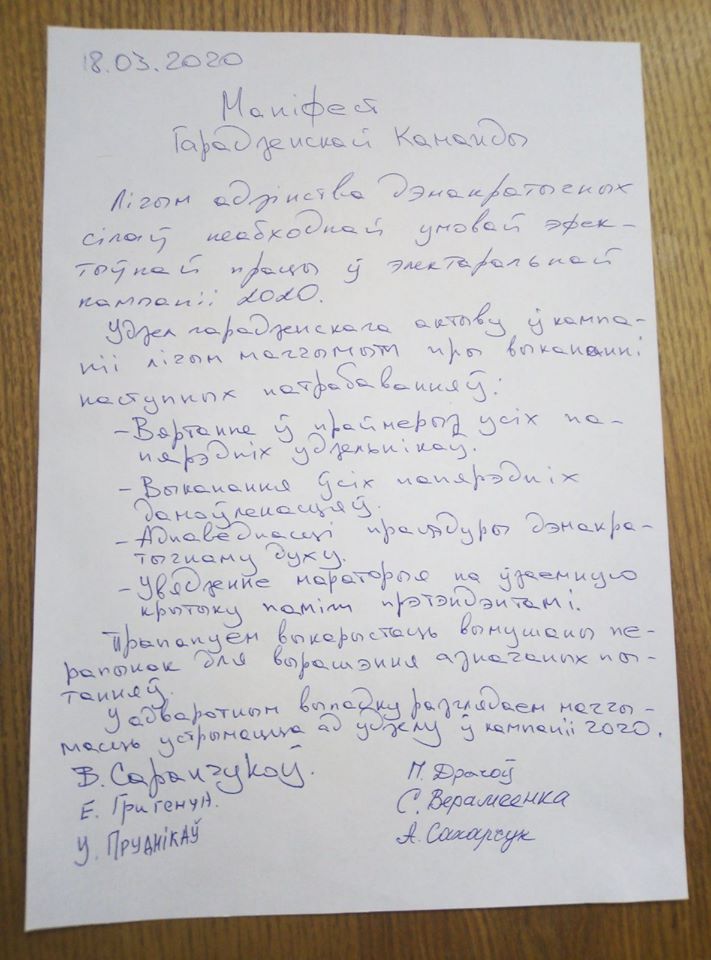 18.03.2020
Маніфест
Гарадзенскай Каманды
Лічым адзінства дэмакратычных
сілаў неабходнай умовай эфек-
тыўнай працы ў электаральнай
кампаніі 2020.
Удзел гарадзенскага актыву ў кампа-
ніі лічым магчымым пры выкананні
наступных патрабаванняў:
- Вяртанне ў праймерыз усіх па-
пярэдніх удзельнікаў.
- Выканання ўсіх папярэдніх
дамоўленасцяў.
- Адпаведнасці працэдуры дэмакра-
тычнаму духу.
- Увядзенне мараторыя на ўзаемную
крытыку паміж прэтэндэнтамі.
Прапануем выкарыстаць вымушаны пе-
рапынак для вырашэння азначаных пы-
танняў.
У адваротным выпадку разглядаем магчы-
масць устрымацца ад удзелу ў кампаніі 2020.
В. Саранчукоў.
Е.
У. Пруднікаў
М. Драчоў
С. Верамеенка
А. Сахарчук